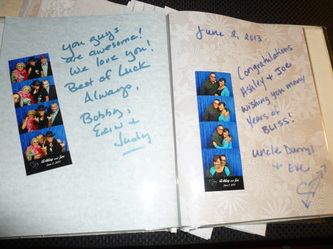 you guys
are awesome!
We love you!
Best of Luck
Always,
Bobby,
Erin &
Judy
Ashley and Joe
June 8, 2013
June 8, 2013
Congratulations
Ashley & Joe
Wishing you many
years of
BLISS!
uncle Darryl
& Eve